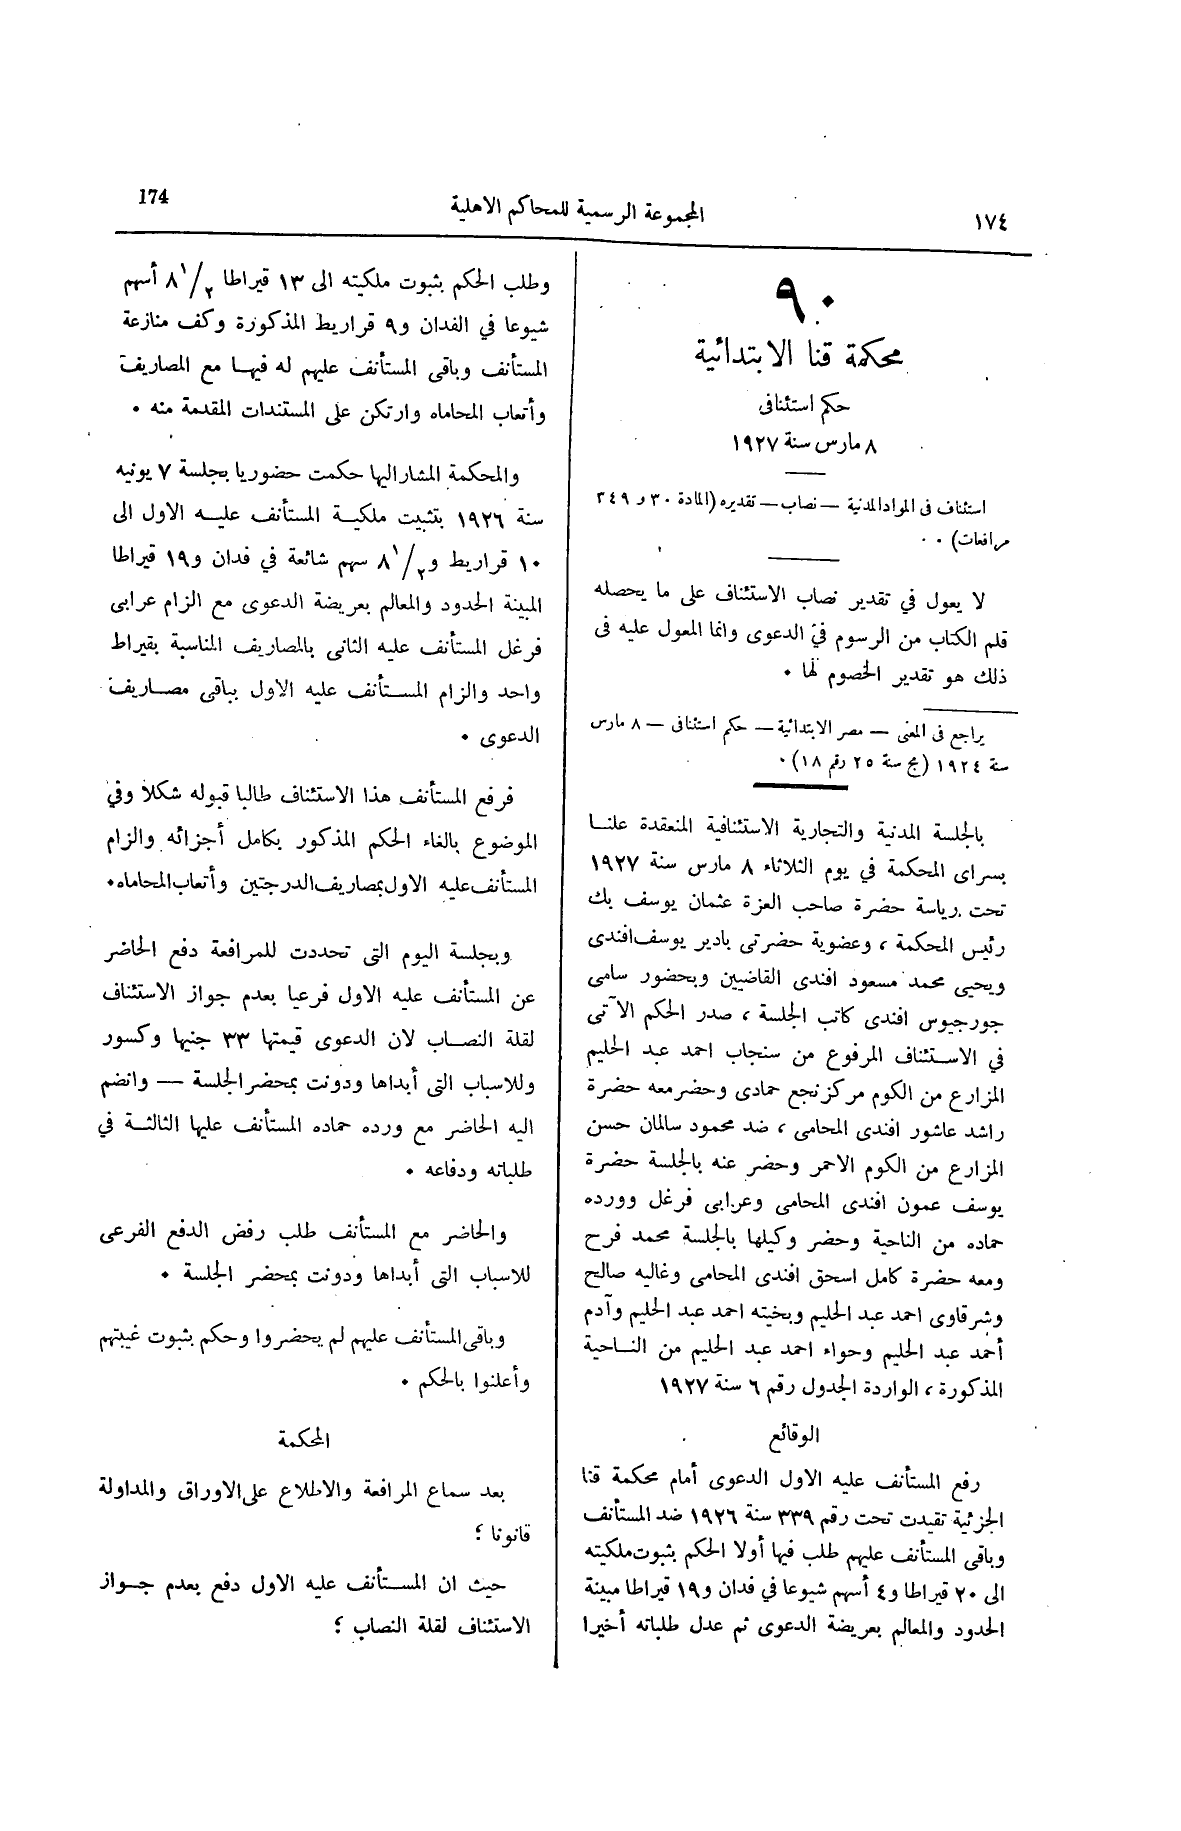 ١٧٤
المجموعة الرسمية للمحاكم الاهلية
174
٩٠
محكمة قنا الابتدائية
حكم استئنافى
٨ مارس سنة ١٩٢٧
استئناف فى المواد المدنية — نصاب — تقديره (المادة ٣٠ و ٣٤٩
مرافعات) ٠
لا يعول في تقدير نصاب الاستئناف على ما يحصله
قلم الكتاب من الرسوم في الدعوى وانما المعول عليه فى
ذلك هو تقدير الخصوم لها ٠
يراجع فى المعنى — مصر الابتدائية — حكم استئنافى — ٨ مارس
سنة ١٩٢٤ (مج سنة ٢٥ رقم ١٨) ٠
بالجلسة المدنية والتجارية الاستئنافية المنعقدة علنا
بسراى المحكمة في يوم الثلاثاء ٨ مارس سنة ١٩٢٧
تحت رياسة حضرة صاحب العزة عثمان يوسف بك
رئيس المحكمة ، وعضوية حضرتى بادير يوسف افندى
ويحيى محمد مسعود افندى القاضيين وبحضور سامى
جورجيوس افندى كاتب الجلسة ، صدر الحكم الآتى
في الاستئناف المرفوع من سنجاب احمد عبد الحليم
المزارع من الكوم مركز نجع حمادى وحضر معه حضرة
راشد عاشور افندى المحامى ، ضد محمود سالمان حسن
المزارع من الكوم الاحمر وحضر عنه بالجلسة حضرة
يوسف عمون افندى المحامى وعرابى فرغل وورده
حماده من الناحية وحضر وكيلها بالجلسة محمد فرح
ومعه حضرة كامل اسحق افندى المحامى وغاليه صالح
وشرقاوى احمد عبد الحليم وبخيته احمد عبد الحليم وآدم
أحمد عبد الحليم وحواء احمد عبد الحليم من الناحية
المذكورة ، الواردة الجدول رقم ٦ سنة ١٩٢٧
الوقائع
رفع المستأنف عليه الاول الدعوى أمام محكمة قنا
الجزئية تقيدت تحت رقم ٣٣٩ سنة ١٩٢٦ ضد المستأنف
وباقى المستأنف عليهم طلب فيها أولا الحكم بثبوت ملكيته
الى ٢٠ قيراطا و٤ أسهم شيوعا في فدان و١٩ قيراطا مبينة
الحدود والمعالم بعريضة الدعوى ثم عدل طلباته أخيرا
وطلب الحكم بثبوت ملكيته الى ١٣ قيراطا ١/٢ ٨ أسهم
شيوعا في الفدان و٩ قراريط المذكورة وكف منازعة
المستأنف وباقى المستأنف عليهم له فيها مع المصاريف
وأتعاب المحاماه وارتكن على المستندات المقدمة منه ٠
والمحكمة المشار اليها حكمت حضوريا بجلسة ٧ يونيه
سنة ١٩٢٦ بتثبيت ملكية المستأنف عليه الاول الى
١٠ قراريط و١/٢ ٨ سهم شائعة في فدان و١٩ قيراطا
المبينة الحدود والمعالم بعريضة الدعوى مع الزام عرابى
فرغل المستأنف عليه الثانى بالمصاريف المناسبة بقيراط
واحد والزام المستأنف عليه الاول بباقى مصاريف
الدعوى ٠
فرفع المستأنف هذا الاستئناف طالبا قبوله شكلا وفي
الموضوع بالغاء الحكم المذكور بكامل أجزائه والزام
المستأنف عليه الاول بمصاريف الدرجتين وأتعاب المحاماه ٠
وبجلسة اليوم التى تحددت للمرافعة دفع الحاضر
عن المستأنف عليه الاول فرعيا بعدم جواز الاستئناف
لقلة النصاب لان الدعوى قيمتها ٣٣ جنيها وكسور
وللاسباب التى أبداها ودونت بمحضر الجلسة — وانضم
اليه الحاضر مع ورده حماده المستأنف عليها الثالثة في
طلباته ودفاعه ٠
والحاضر مع المستأنف طلب رفض الدفع الفرعى
للاسباب التى أبداها ودونت بمحضر الجلسة ٠
وباقى المستأنف عليهم لم يحضروا وحكم بثبوت غيبتهم
وأعلنوا بالحكم ٠
المحكمة
بعد سماع المرافعة والاطلاع على الاوراق والمداولة
قانونا ؛
حيث ان المستأنف عليه الاول دفع بعدم جواز
الاستئناف لقلة النصاب ؛